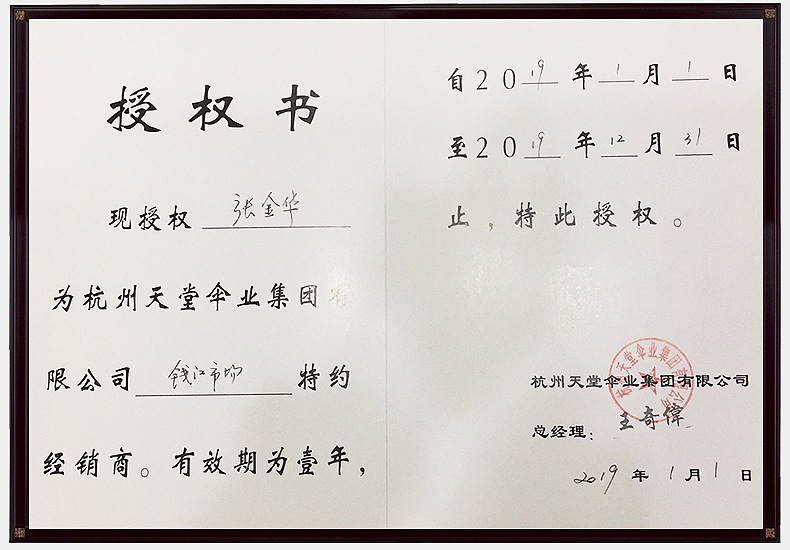 授权书
现授权 张金华
为杭州天堂伞业集团有
限公司 钱江市场 特约
经销商。有效期为壹年，
自2019年1月1日
至2019年12月31日
止，特此授权。
杭州天堂伞业集团有限公司
杭州天堂伞业集团有限公司
总经理： 王奇偉
2019年1月1日